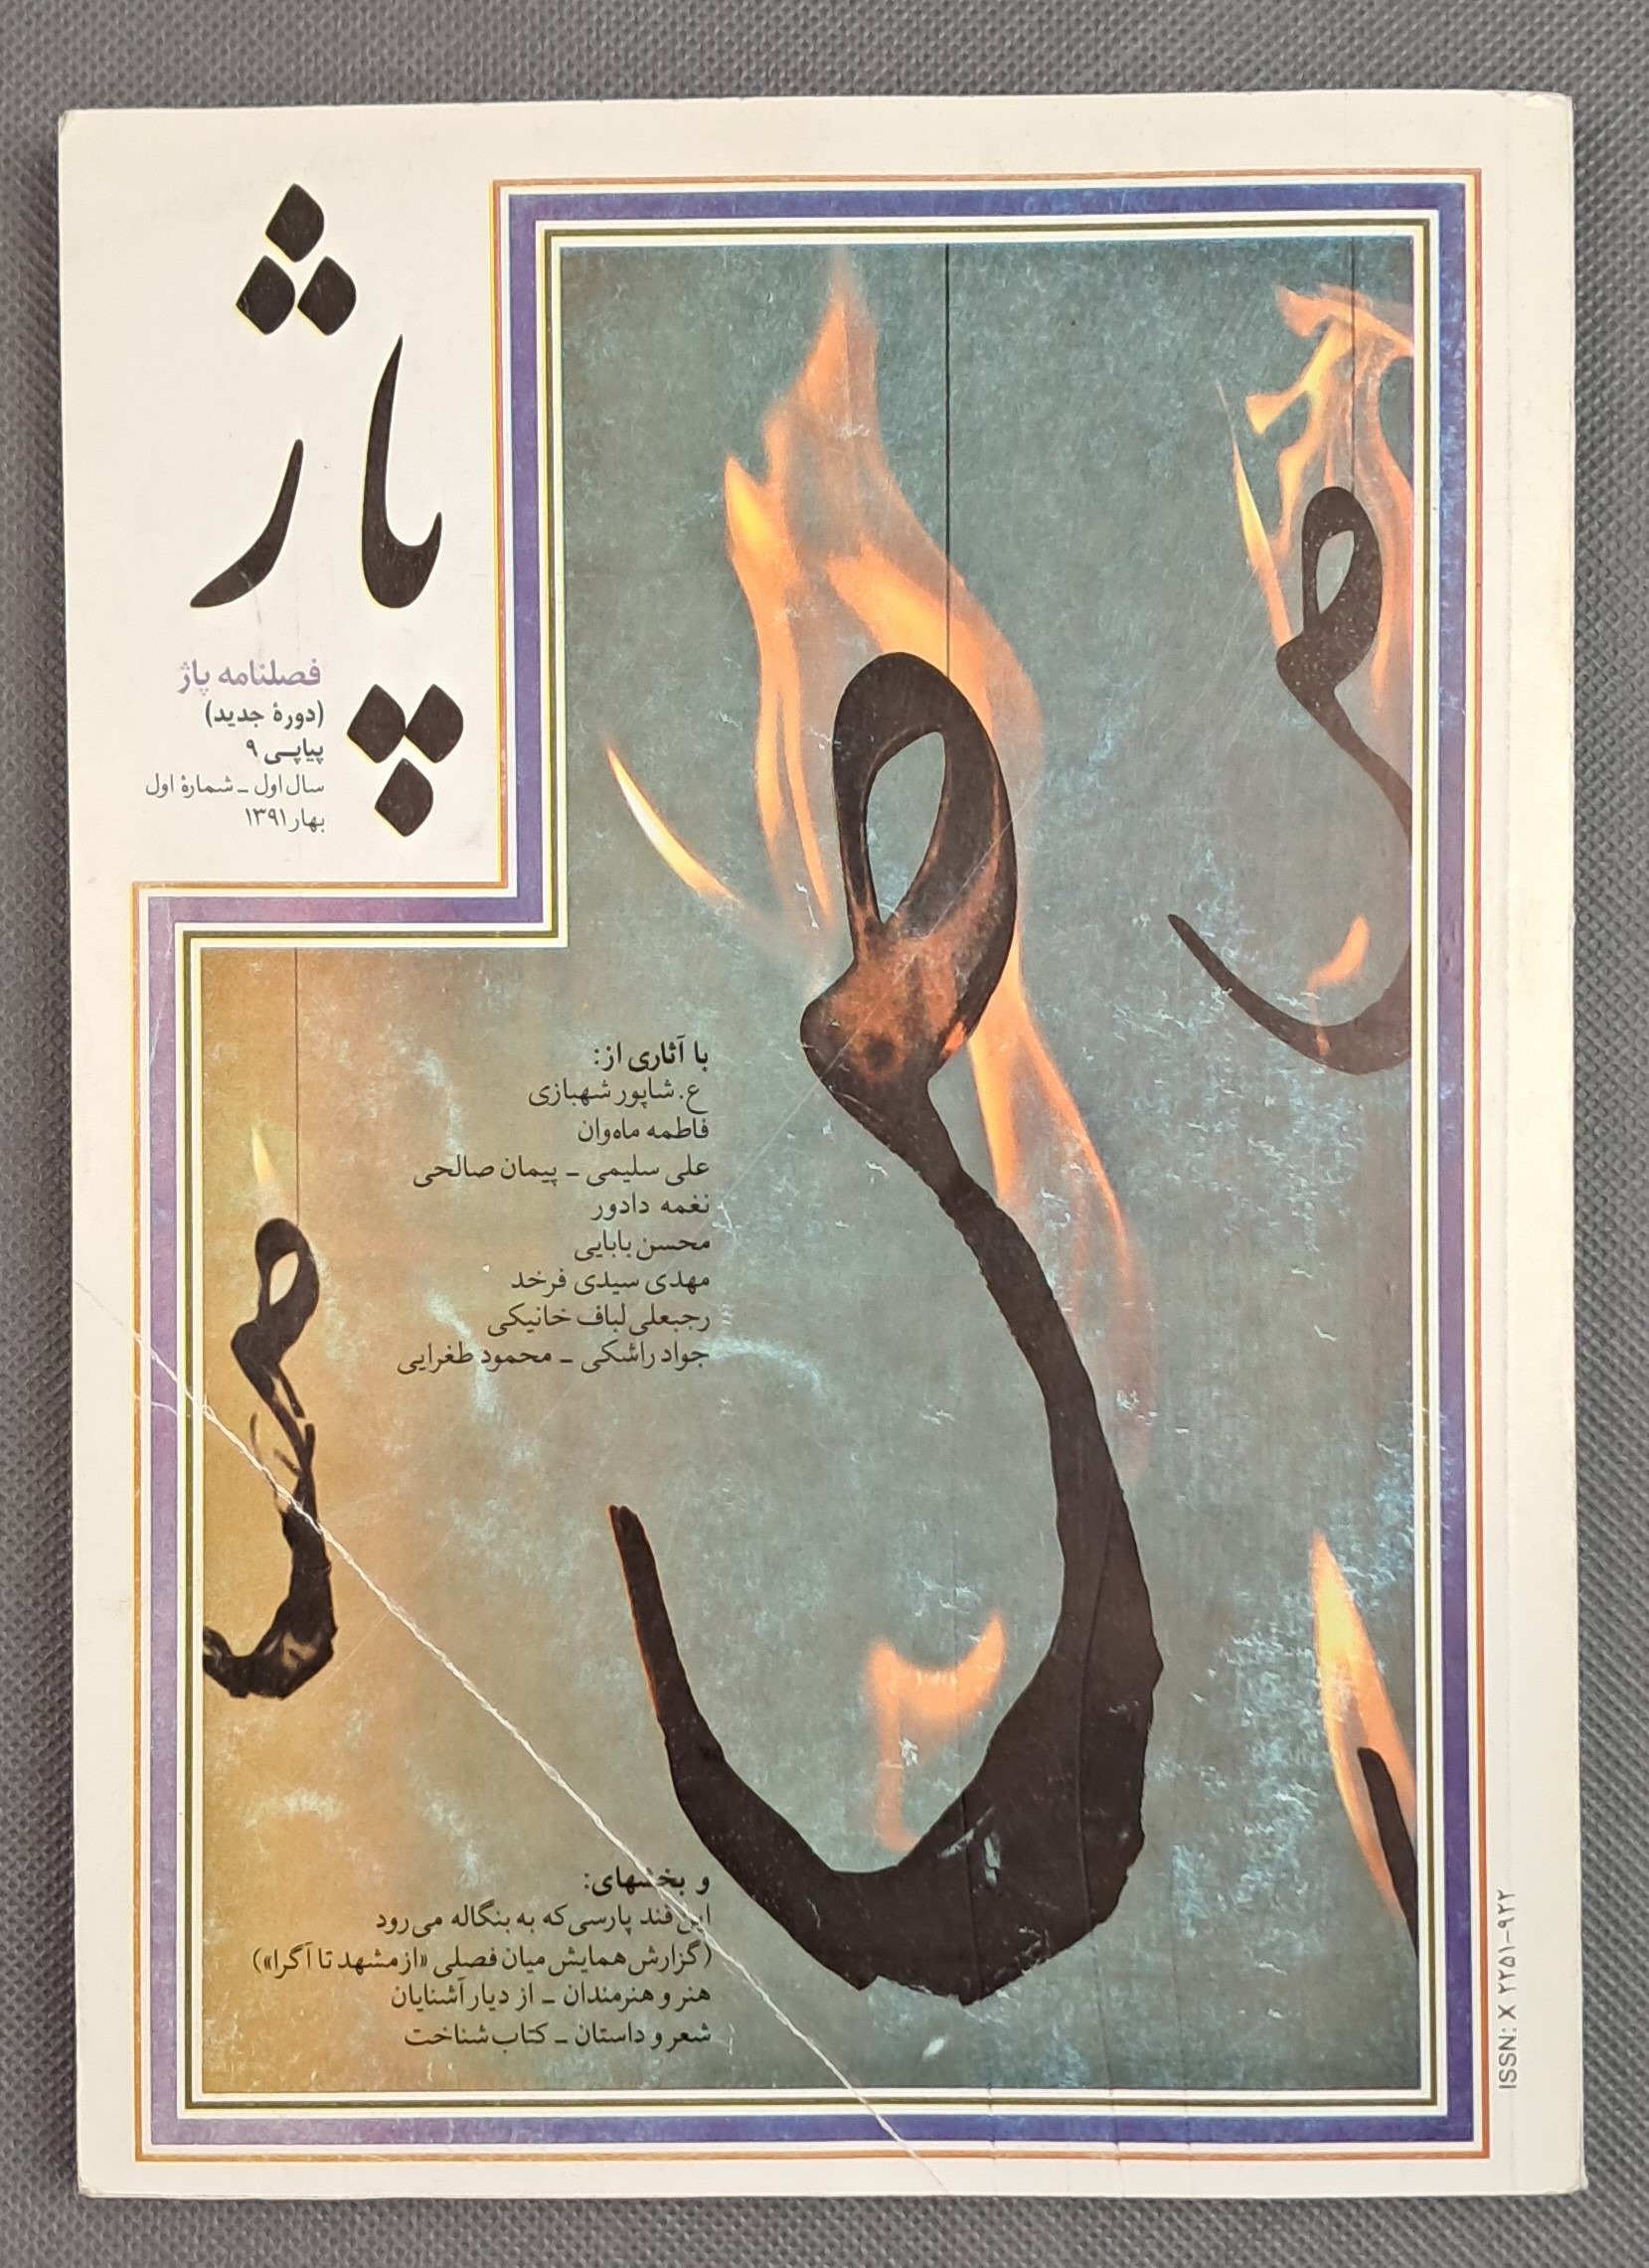 پاژ
فصلنامه پاژ
(دورهٔ جدید)
پیاپی ۹
سال اول ـ شمارهٔ اول
بهار ۱۳۹۱
با آثاری از:
ع. شاپور شهبازی
فاطمه ماه‌وان
علی سلیمی ـ پیمان صالحی
نغمه دادور
محسن بابایی
مهدی سیدی فرخد
رجبعلی لباف خانیکی
جواد راشکی ـ محمود طغرایی
و بخشهای:
این قند پارسی که به بنگاله می‌رود
(گزارش همایش میان فصلی «از مشهد تا آگرا»)
هنر و هنرمندان ـ از دیار آشنایان
شعر و داستان ـ کتاب شناخت
ISSN: X ۲۲۵۱-۹۲۲